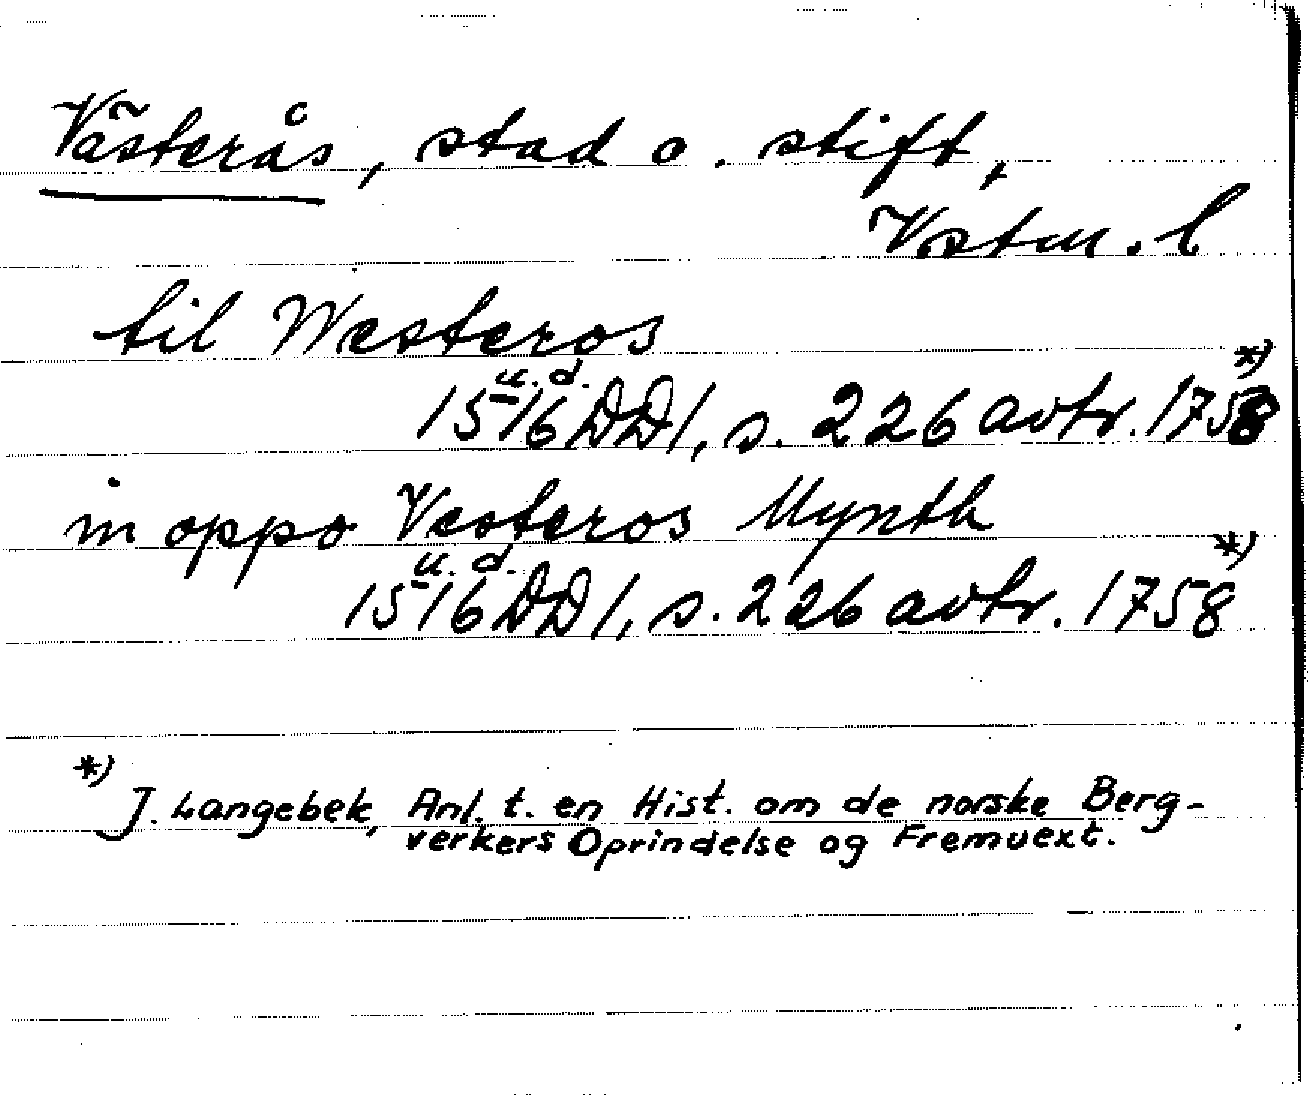 Västerås, stad o. stift,
Vstm. l
til Westeros
1516 u. d. DD 1, s. 226 avtr. 1758 *)
in oppo Vesteros Mynth
1516 u. d. DD 1, s. 226 avtr. 1758 *)
*) J. Langebek, Anl. t. en Hist. om de norske Berg-
verkers Oprindelse og Fremvext.